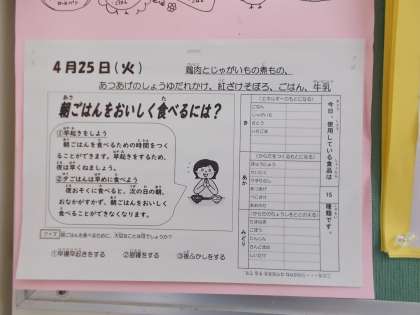 4月25日(火)
鶏肉とじゃがいもの煮もの、
あつあげのしょうゆだれかけ、紅ざけそぼろ、ごはん、牛乳
朝ごはんをおいしく食べるには?
①早起きをしよう
朝ごはんを食べるための時間をつく
ることができます。早起きをするため、
夜は早くねましょう。
②夕ごはんは早めに食べよう
夜おそくに食べると、次の日の朝、
おなかがすかず、朝ごはんをおいしく
食べることができなくなります。
クイズ
朝ごはんを食べるために、大切なことは何でしょうか?
①早寝早起きをする
②朝寝をする
③夜ふかしをする
今日、使用している食品は
15
種類です。
き
(エネルギーのもとになる)
ごはん
じゃがいも
さとう
あか
(からだをつくるもとになる)
とりにく
あつあげ
みどり
(からだのちょうしをととのえる)
たまねぎ
ごぼう
にんじん
さんどまめ
しいたけ